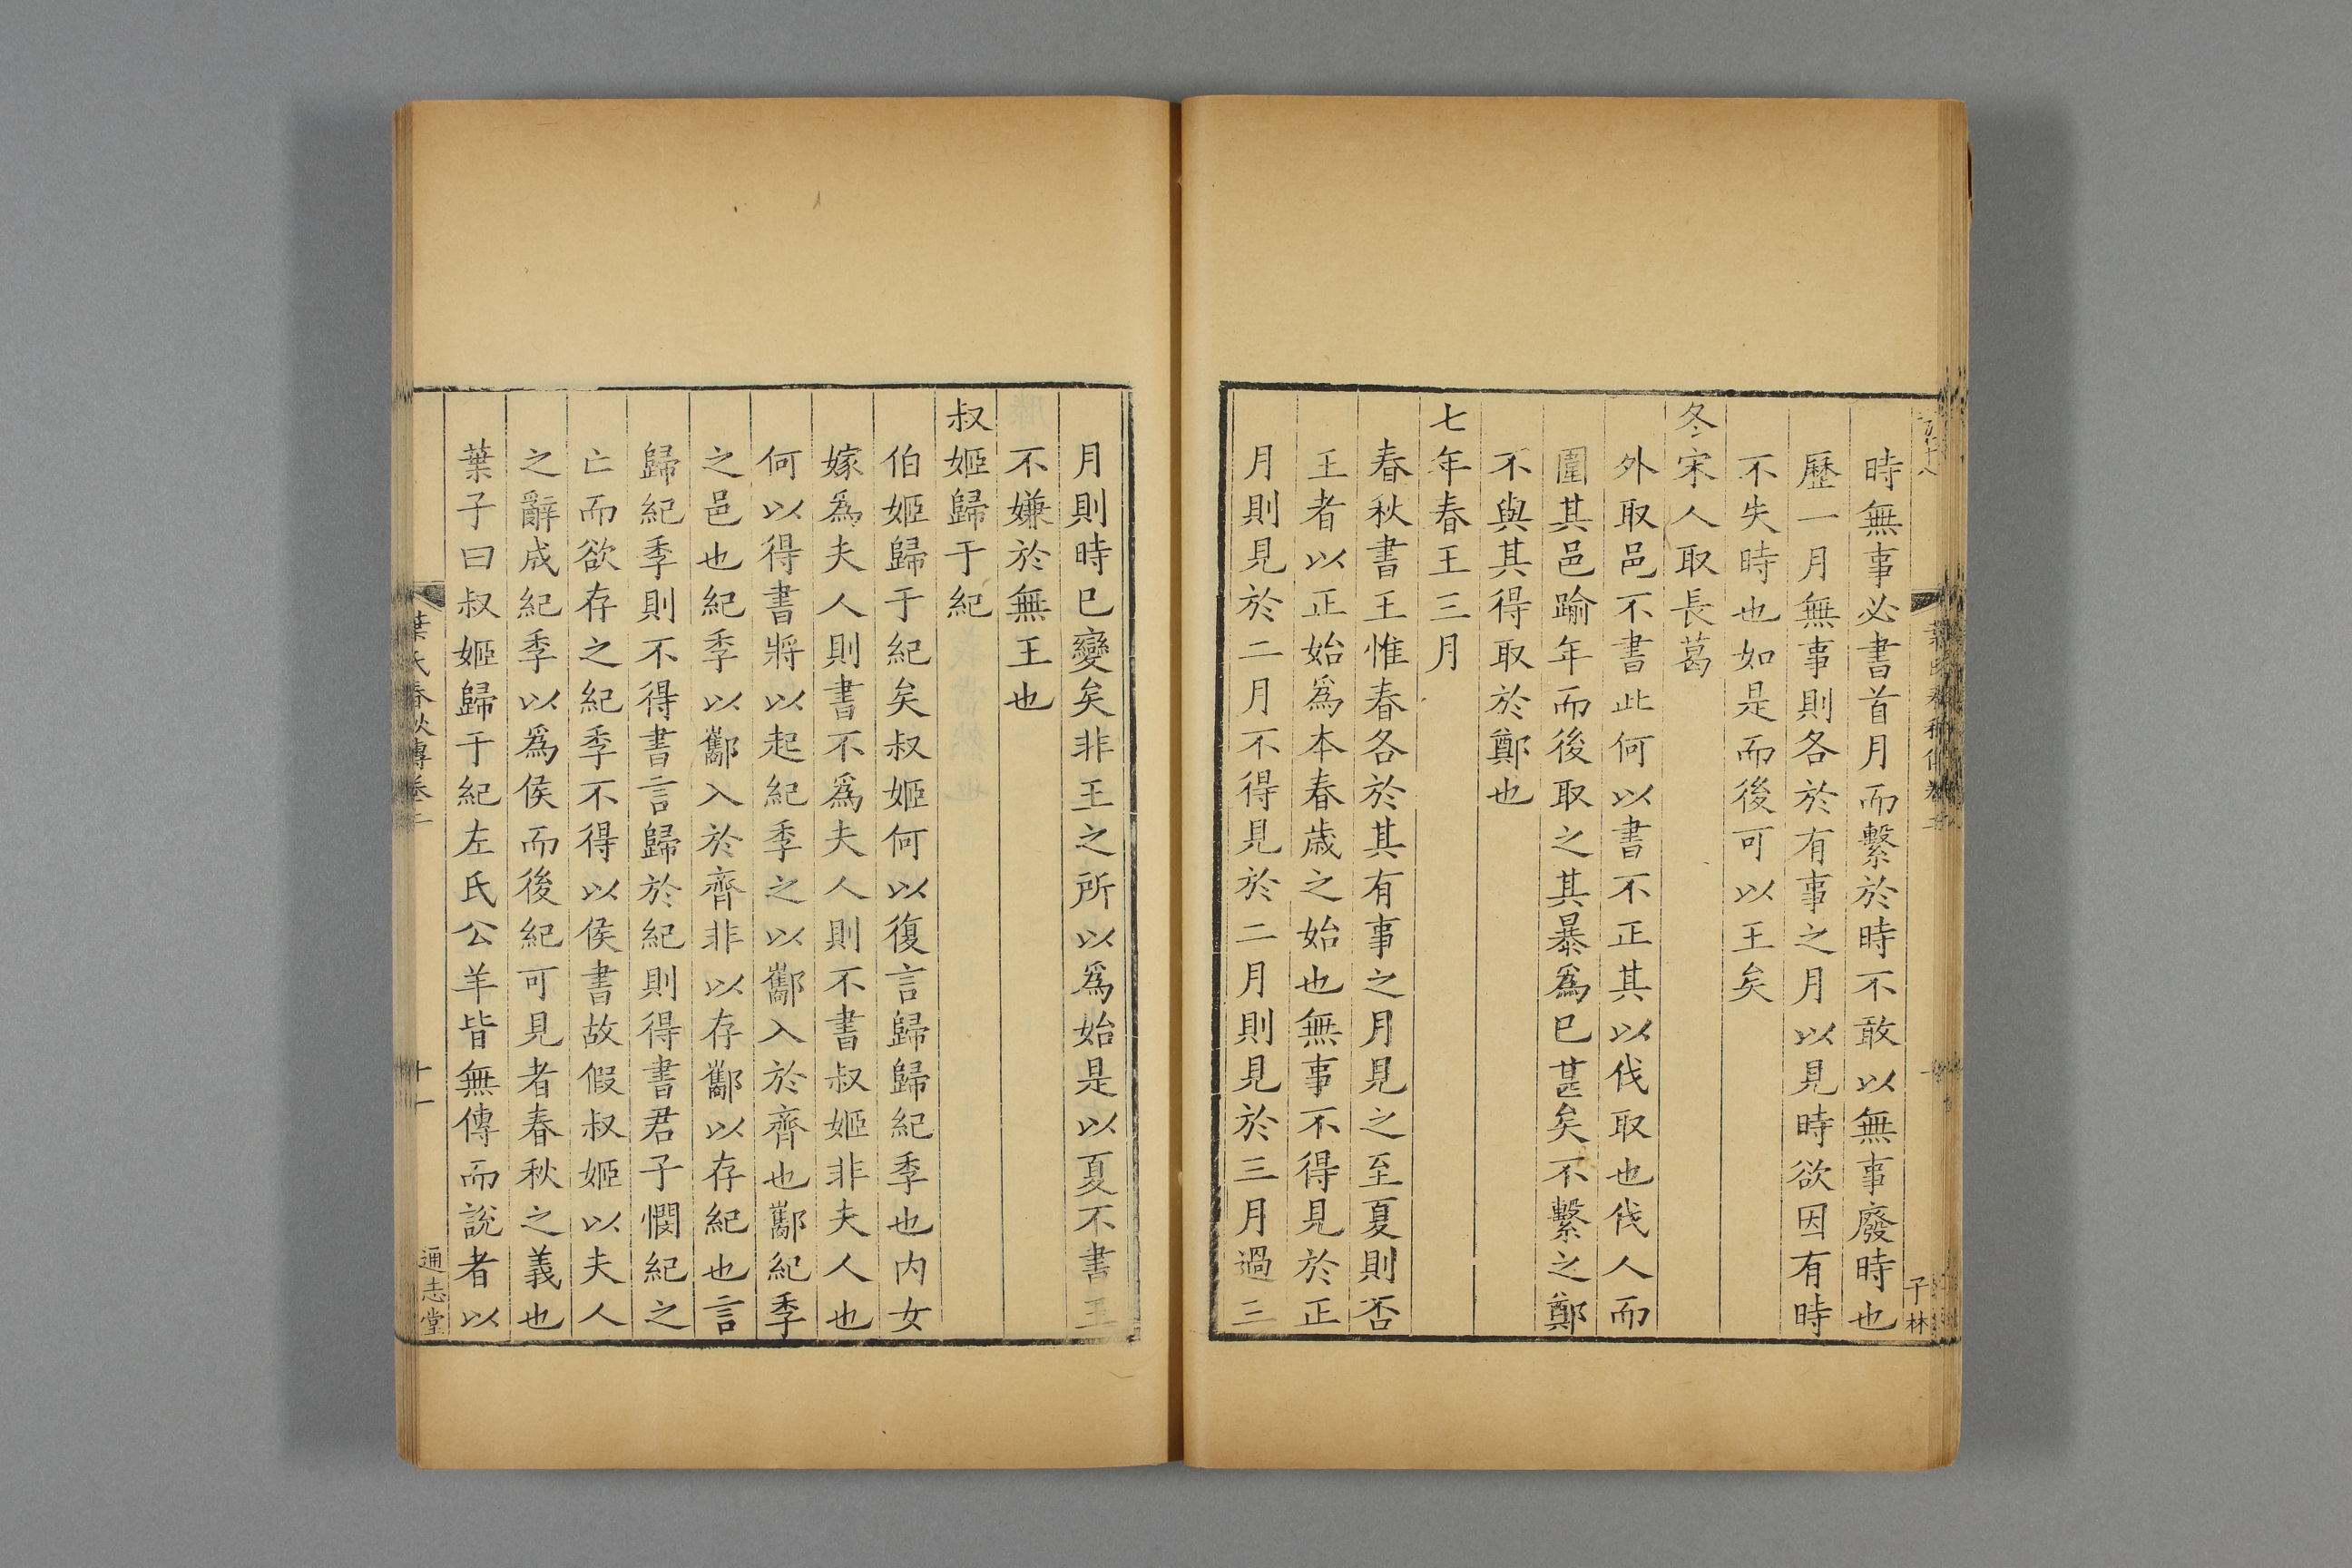 時無事必書首月而繫於時不敢以無事廢時也
歷一月無事則各於有事之月以見時欲因有時
不失時也如是而後可以王矣
冬宋人取長葛
外取邑不書此何以書不正其以伐取也伐人而
圍其邑踰年而後取之其暴爲已甚矣不繫之鄭
不與其得取於鄭也
七年春王三月
春秋書王惟春各於其有事之月見之至夏則否
王者以正始爲本春歳之始也無事不得見於正
月則見於二月不得見於二月則見於三月過三
月則時巳變矣非王之所以爲始是以夏不書王
不嫌於無王也
叔姬歸于紀
伯姬歸于紀矣叔姬何以復言歸歸紀季也内女
嫁爲夫人則書不爲夫人則不書叔姬非夫人也
何以得書將以起紀季之以酅入於齊也酅紀季
之邑也紀季以酅入於齊非以存酅以存紀也言
歸紀季則不得書言歸於紀則得書君子憫紀之
亡而欲存之紀季不得以侯書故假叔姬以夫人
之辭成紀季以爲侯而後紀可見者春秋之義也
葉子曰叔姬歸于紀左氏公羊皆無傳而說者以
葉氏春秋傳卷二
十一
通志堂
子林